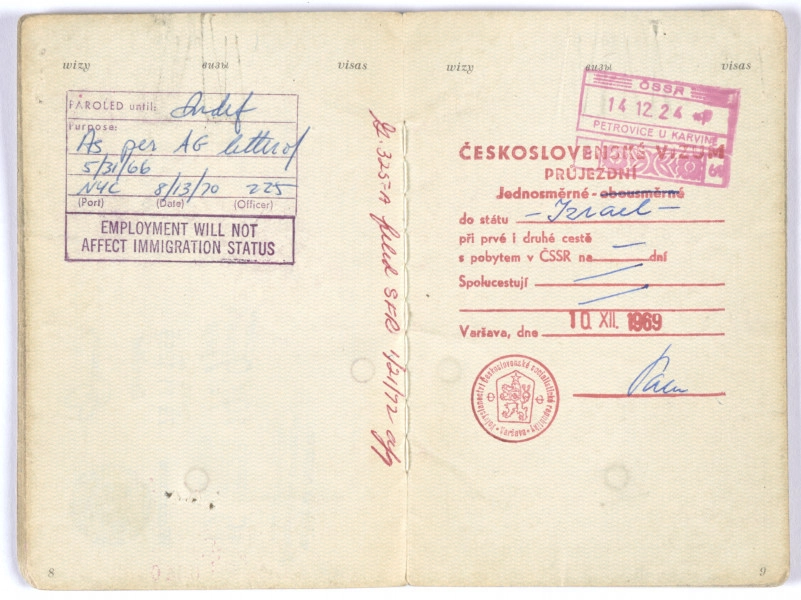 wizy визы visas
PAROLED until: Indef
Purpose:
As per AG letter of
5/31/66
NYC 8/13/70 225
(Port) (Date) (Officer)
EMPLOYMENT WILL NOT
AFFECT IMMIGRATION STATUS
I-325A filed SFR 1/21/72
8
wizy визы visas
ČSSR
14 12 24
PETROVICE U KARVINÉ
ČESKOSLOVENSKÉ VÍZUM
PRŮJEZDNÍ
Jednosměrné - obousměrné
do státu - Izrael -
při prvé i druhé cestě
s pobytem v ČSSR na — dní
Spolucestují
Varšava, dne 10. XII. 1969
Velvyslanectví Československé socialistické republiky
Varšava
9